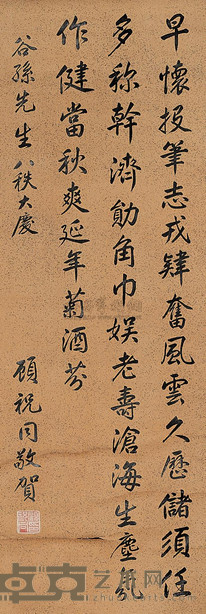 早懷投筆志戎肄奮風雲久歷儲須任
多称幹濟勛角巾娱老壽滄海生塵氛
作健當秋爽延年菊酒芬
谷孫先生八秩大慶
顧祝同敬賀
卓克艺术网